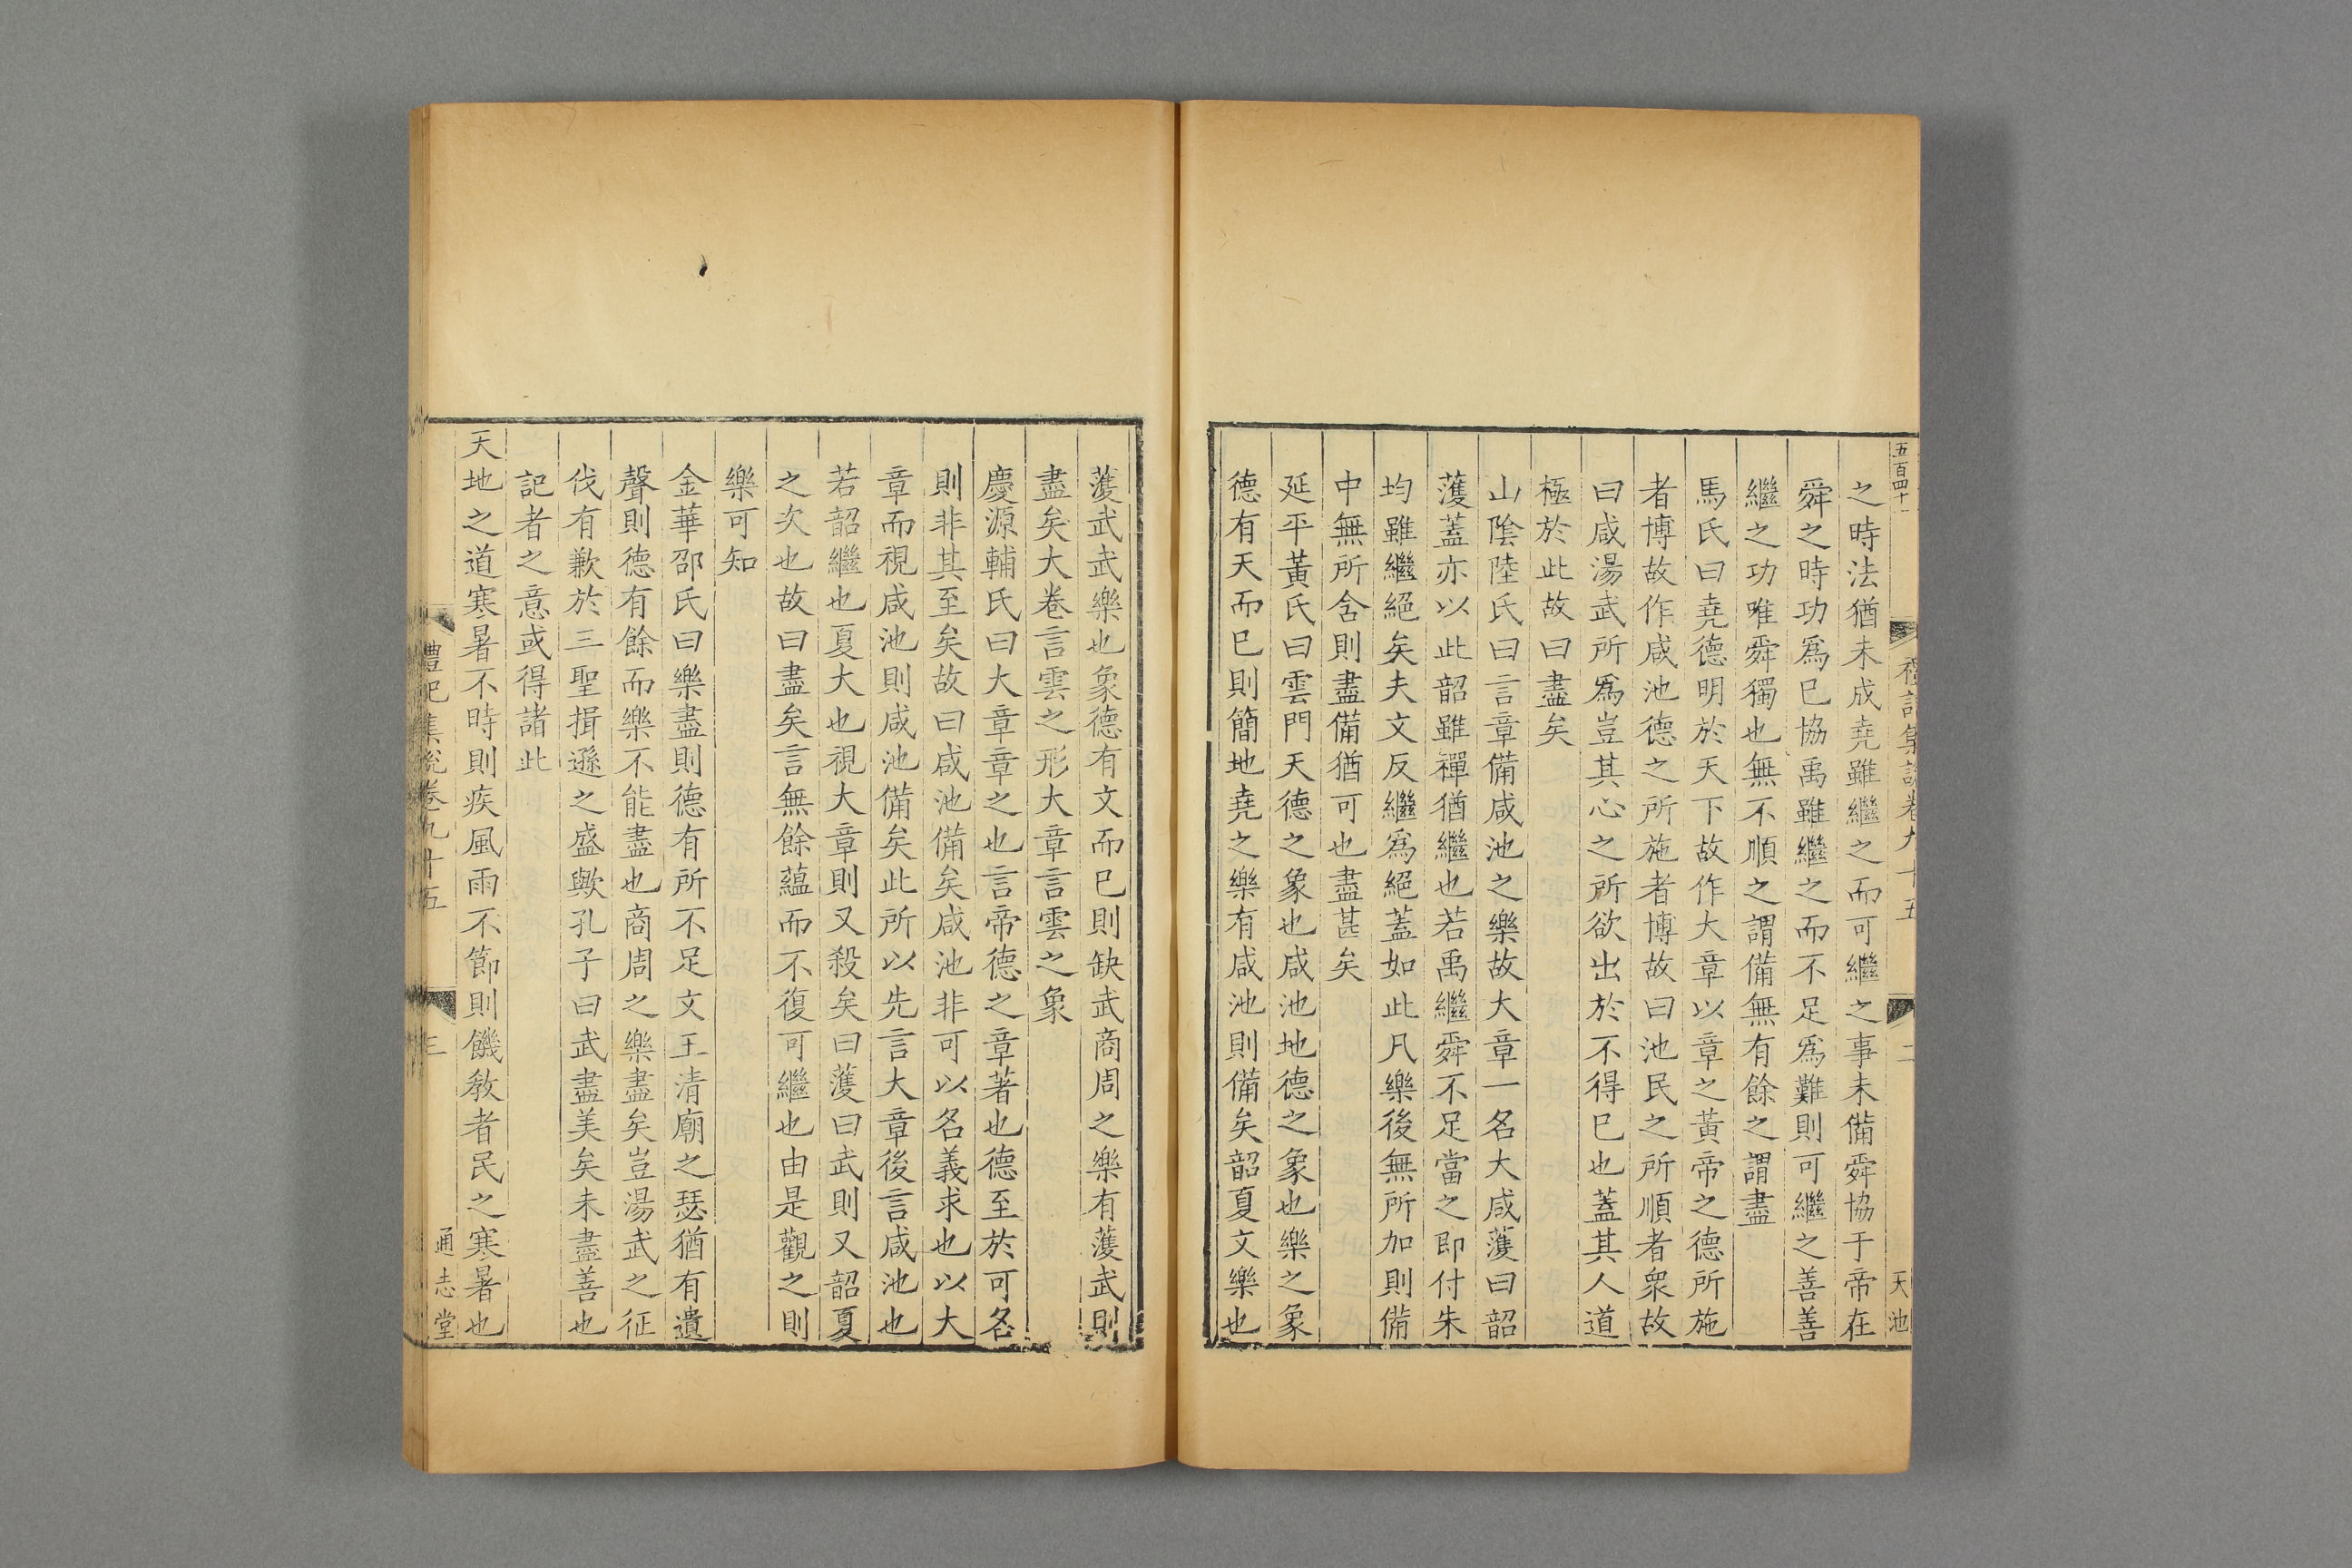 五百四十
禮記集說卷九十五
二
天池
之時法猶未成堯雖繼之而可繼之事未備舜協于帝在
舜之時功爲已協禹雖繼之而不足爲難則可繼之善善
繼之功唯舜獨也無不順之謂備無有餘之謂盡
馬氏曰堯德明於天下故作大章以章之黃帝之德所施
者博故作咸池德之所施者博故曰池民之所順者衆故
曰咸湯武所爲豈其心之所欲出於不得已也蓋其人道
極於此故曰盡矣
山陰陸氏曰言章備咸池之樂故大章一名大咸濩曰韶
濩蓋亦以此韶雖禪猶繼也若禹繼舜不足當之即付朱
均雖繼絕矣夫文反繼爲絕蓋如此凡樂後無所加則備
中無所含則盡備猶可也盡甚矣
延平黃氏曰雲門天德之象也咸池地德之象也樂之象
德有天而已則簡地堯之樂有咸池則備矣韶夏文樂也
濩武武樂也象德有文而已則缺武商周之樂有濩武則
盡矣大卷言雲之形大章言雲之象
慶源輔氏曰大章章之也言帝德之章著也德至於可名
則非其至矣故曰咸池備矣咸池非可以名義求也以大
章而視咸池則咸池備矣此所以先言大章後言咸池也
若韶繼也夏大也視大章則又殺矣曰濩曰武則又韶夏
之次也故曰盡矣言無餘蘊而不復可繼也由是觀之則
樂可知
金華邵氏曰樂盡則德有所不足文王清廟之瑟猶有遺
聲則德有餘而樂不能盡也商周之樂盡矣豈湯武之征
伐有歉於三聖揖遜之盛歟孔子曰武盡美矣未盡善也
記者之意或得諸此
天地之道寒暑不時則疾風雨不節則饑教者民之寒暑也
禮記集說卷九十五
三
通志堂